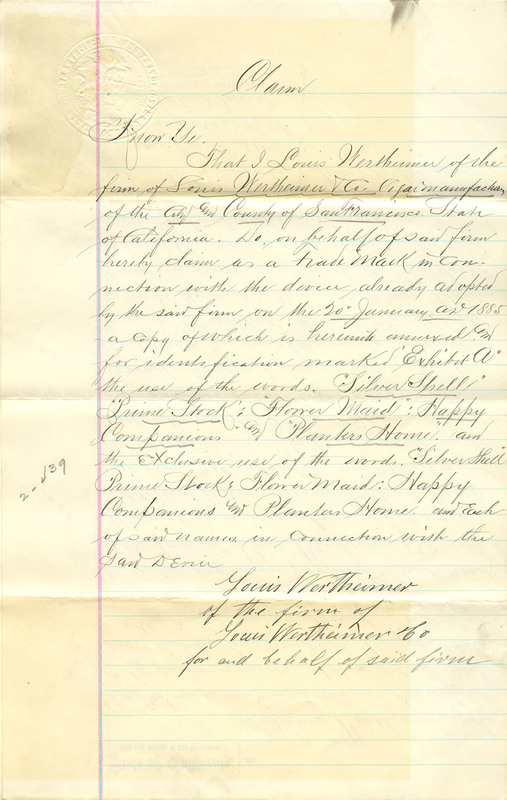 Claim
Know Ye.
That I Louis Wertheimer of the
firm of Louis Wertheimer & Co. Cigar manufacturers
of the City and County of San Francisco. State
of California. Do, on behalf of said firm
hereby claim as a Trade Mark in con-
nection with the device, already adopted
by the said firm on the 20" January A.D. 1885
a copy of which is herewith annexed and
for identification marked "Exhibit A"
the use of the words. "Silver Shell"
"Prime Stock"; "Flower Maid"; Happy
Companions" and "Planters Home." and
the Exclusive use of the words. "Silver Shell
Prime Stock; Flower Maid; Happy
Companions and Planters Home. and Each
of said names in connection with the
said Device
Louis Wertheimer
of the firm of
Louis Wertheimer & Co
for and behalf of said firm
2-439